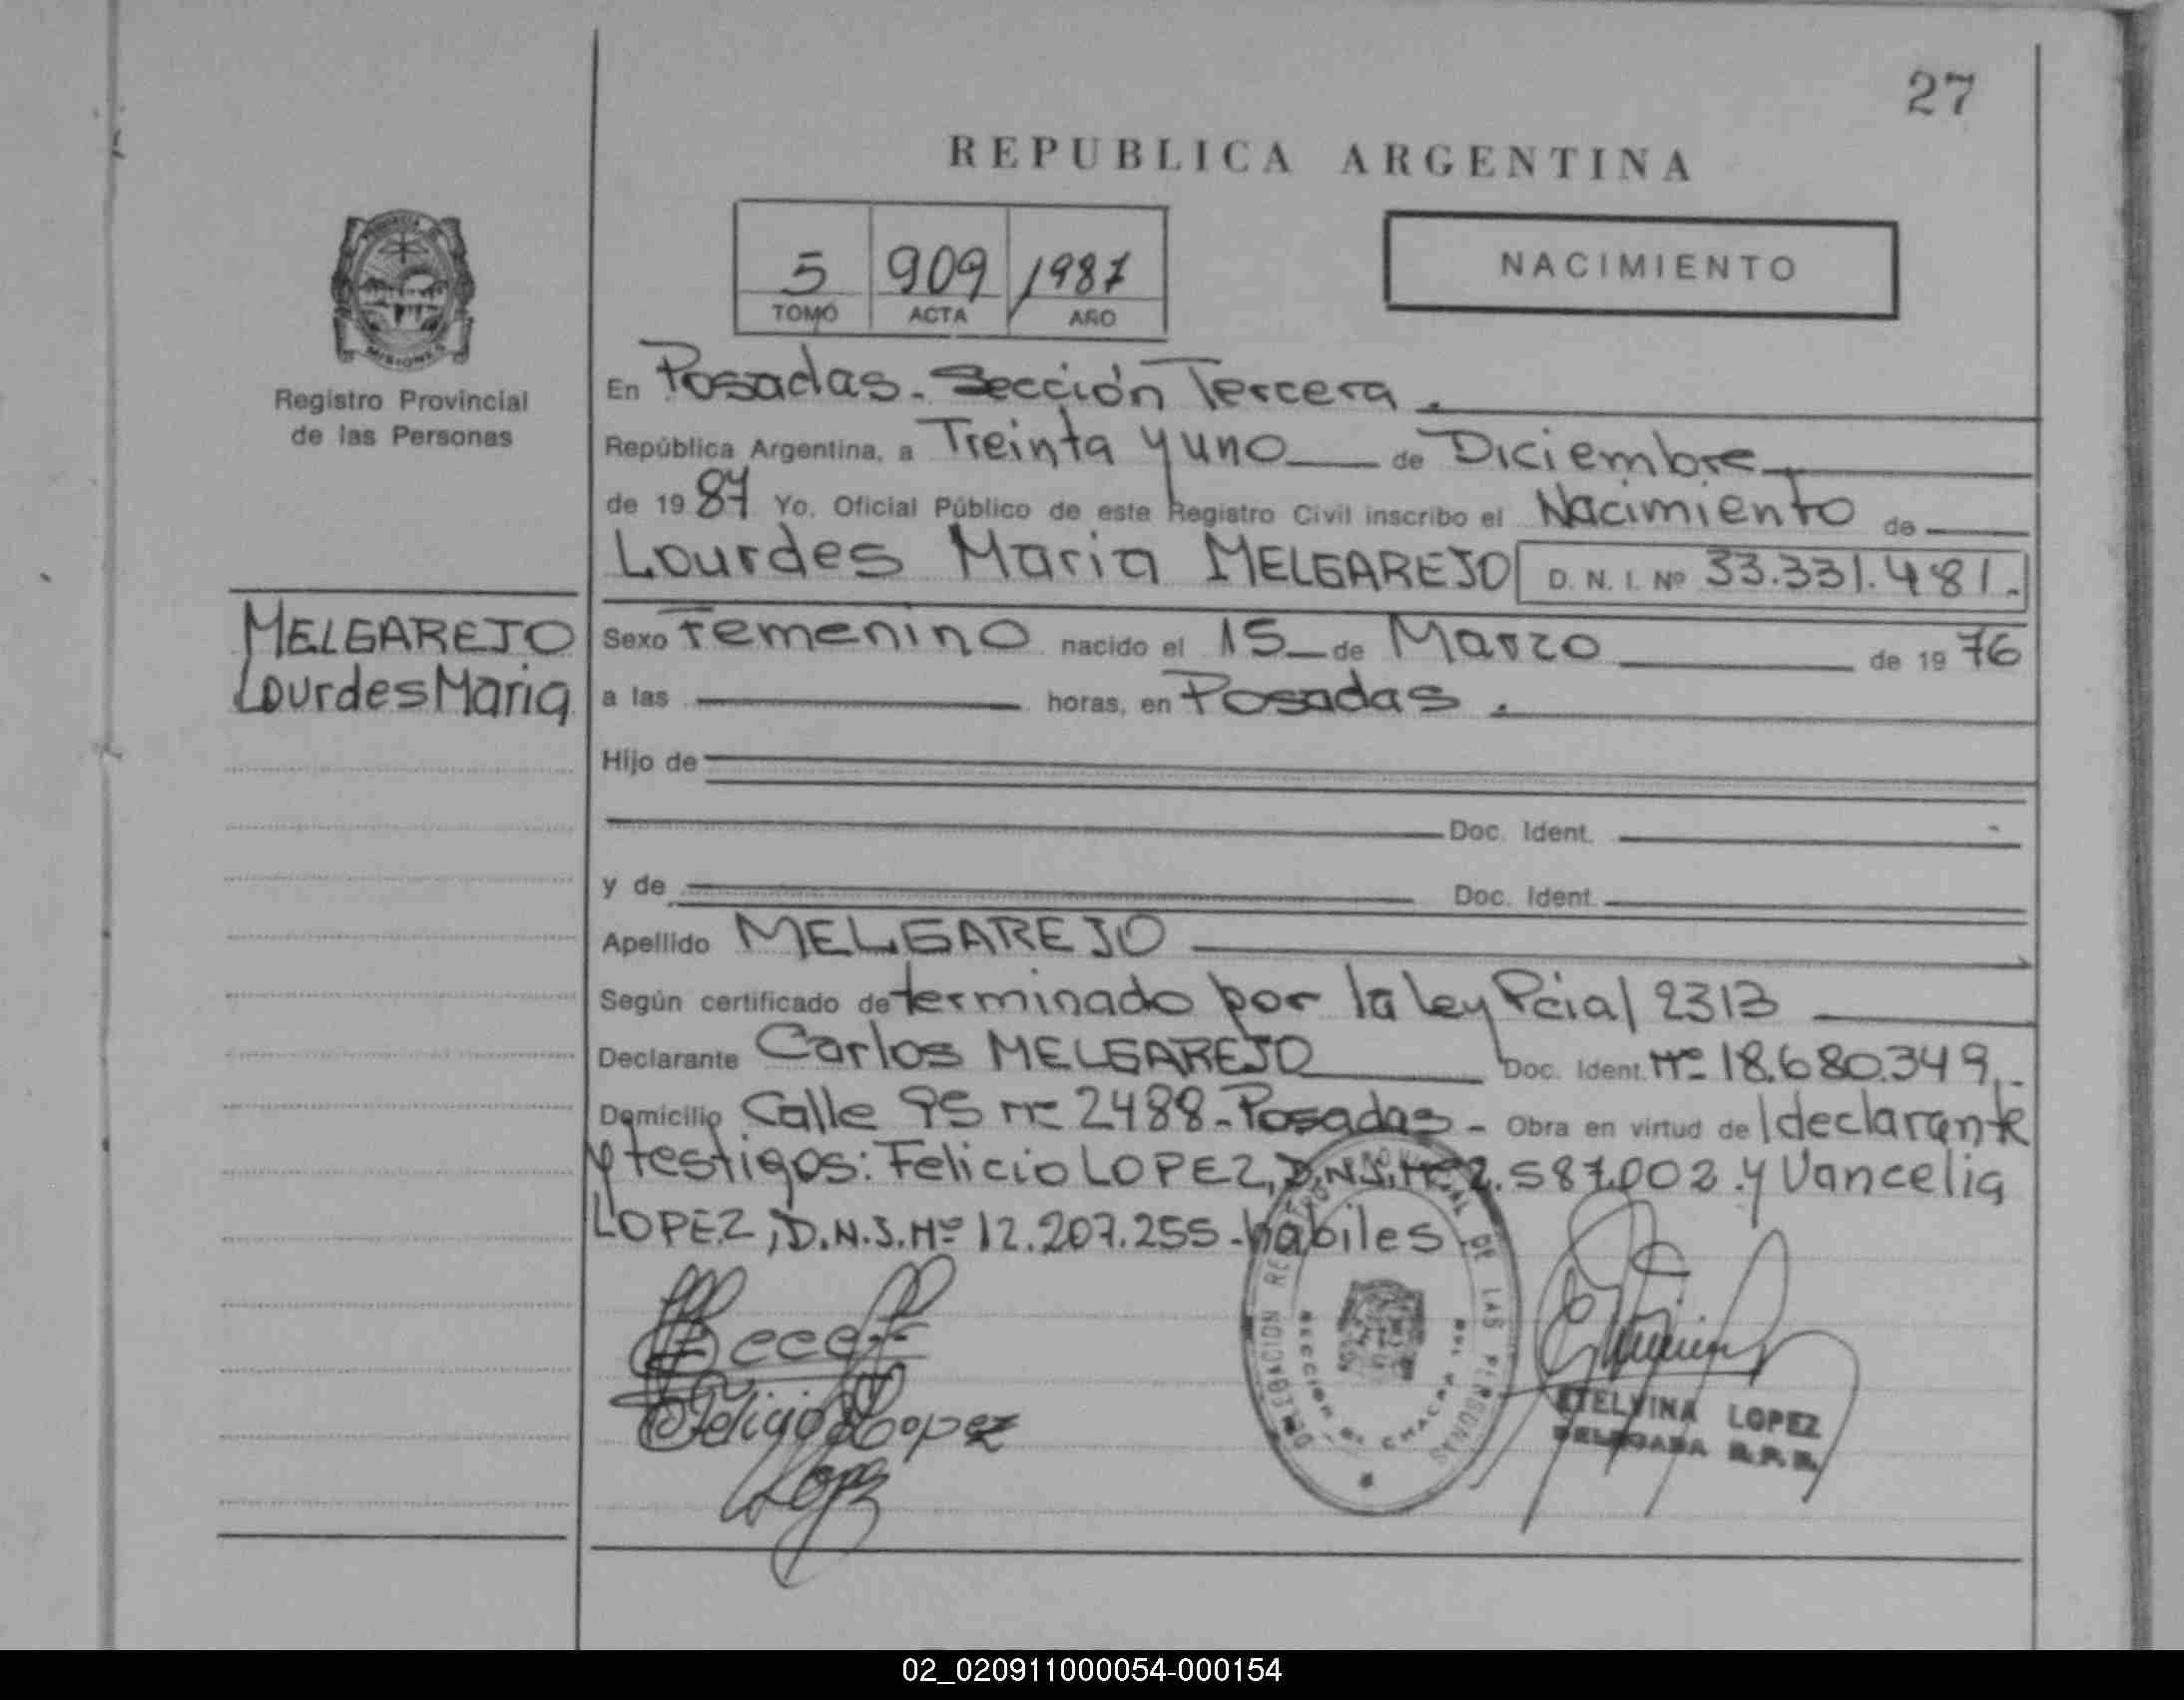 27
REPUBLICA ARGENTINA
5 909 1987
TOMO ACTA AÑO
NACIMIENTO
MISIONES
Registro Provincial
de las Personas
En Posadas. Sección Tercera.
República Argentina, a Treinta y uno de Diciembre
de 1987 Yo, Oficial Público de este Registro Civil inscribo el Nacimiento de
Lourdes Maria MELGAREJO D. N. I. Nº 33.331.481.
MELGAREJO
Lourdes Maria
Sexo Femenino nacido el 15 de Marzo de 1976
a las horas, en Posadas.
Hijo de
Doc. Ident.
y de Doc. Ident.
Apellido MELGAREJO
Según certificado determinado por la ley Pcial 2313
Declarante Carlos MELGAREJO Doc. Ident. Nº 18.680.349.-
Domicilio Calle 95 nº 2488-Posadas- Obra en virtud del declarante
y testigos: Felicio LOPEZ, D.N.I. Nº 2.587.002. y Vancelia
LOPEZ, D.N.I. Nº 12.207.255-habiles
DELEGACION REGISTRO PROVINCIAL DE LAS PERSONAS
Felicio Lopez
Lopez
ETELVINA LOPEZ
DELEGADA R.P.P.
02_020911000054-000154